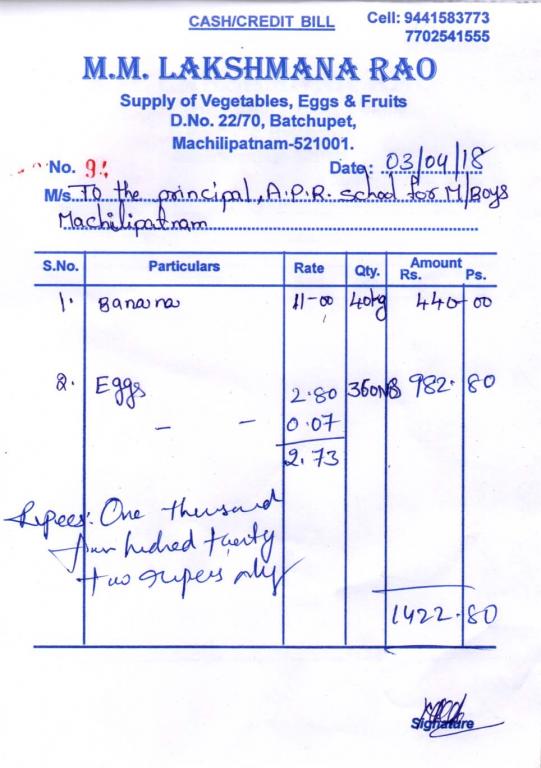 CASH/CREDIT BILL
Cell: 9441583773
7702541555
M.M. LAKSHMANA RAO
Supply of Vegetables, Eggs & Fruits
D.No. 22/70, Batchupet,
Machilipatnam-521001.
No. 91 Date: 03/04/18
M/s. To the principal, A.P.R. school for M/Boys
Machilipatnam
S.No. Particulars Rate Qty. Amount Rs. Ps.
1. Banana 11-00 40kg 440-00
2. Eggs 2.80 360NB 982.80
- - 0.07
2.73
Rupees: One thousand
four hudred twenty
two rupees only
1422.80
Signature